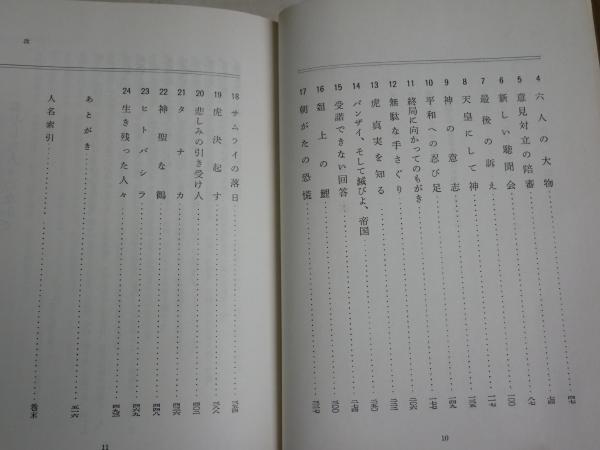 4 六人の大物 四七
5 意見対立の陪審
6 新しい聴聞会 八七
7 最後の訴え 一〇〇
8 天皇にして神 一一七
9 神の意志
10 平和への忍び足 一四九
11 終局に向かってのもがき
12 無駄な手さぐり
13 虎真実を知る
14 バンザイ、そして滅びよ、帝国
15 受諾できない回答 三〇〇
16 俎上の鯉
17 朝がたの恐慌
10
次
18 サムライの落日
19 虎決起す
20 悲しみの引き受け人 四〇三
21 タナカ
22 神聖な鶴 四四八
23 ヒトバシラ 四六九
24 生き残った人々
あとがき 五一六
人名索引 巻末
11